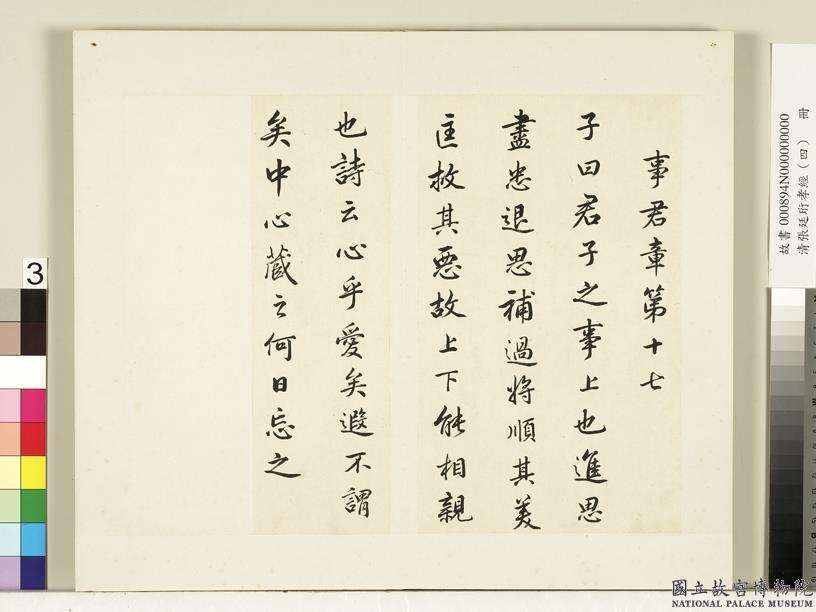 事君章第十七
子曰君子之事上也進思
盡忠退思補過將順其美
匡救其惡故上下能相親
也詩云心乎愛矣遐不謂
矣中心藏之何日忘之
3
故書000894N000000000
清張廷珩孝經（四） 冊
國立故宮博物院
NATIONAL PALACE MUSEUM